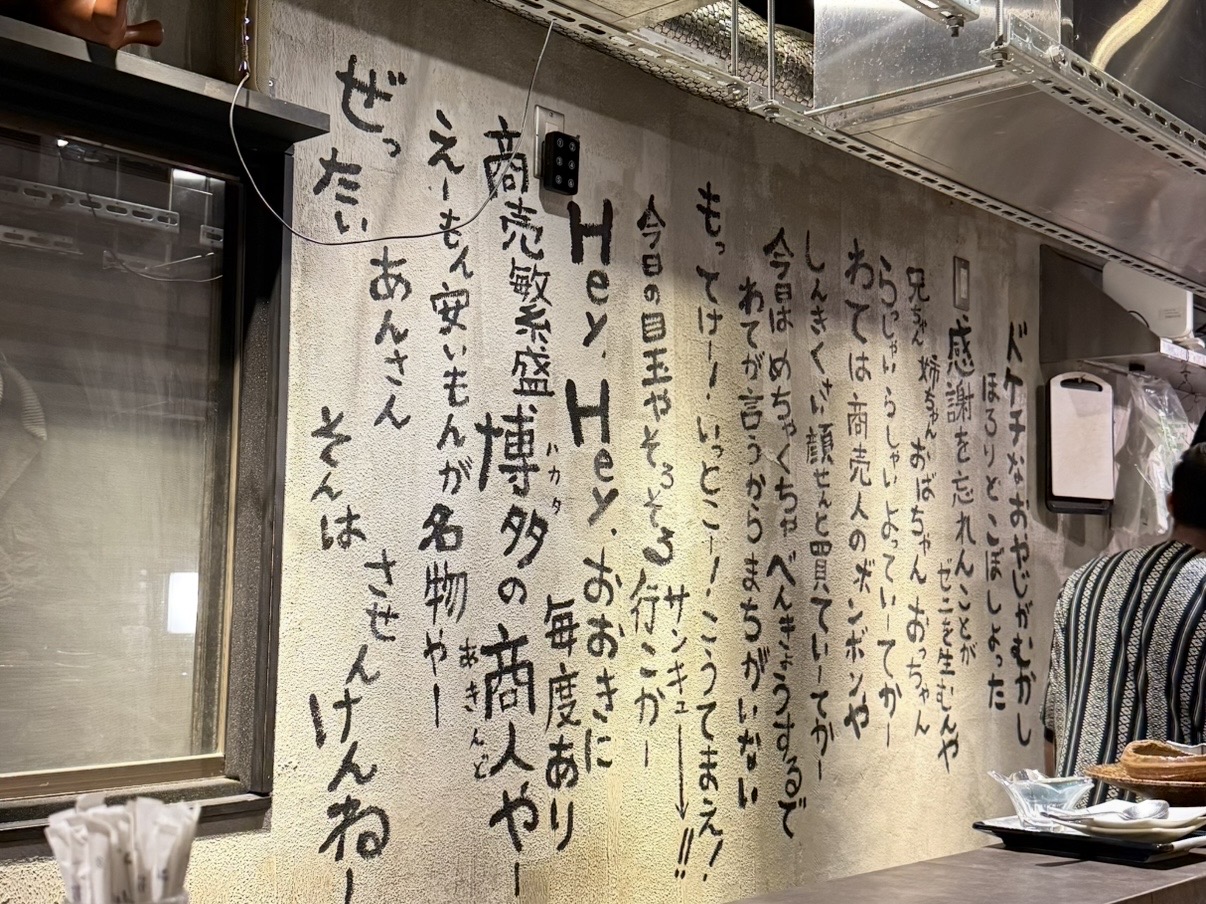 ドケチなおやじがむかし
ほろりとこぼしよった
感謝を忘れんことが
ゼニを生むんや
兄ちゃん 姉ちゃん おばちゃん おっちゃん
らっしゃい らっしゃい よっていーてかー
わては商売人のボンボンや
しんきくさい顔せんと買ていーてかー
今日は めちゃくちゃ べんきょうするで
わてが言うからまちがいない
もってけー! いっとこー! こうてまえ!
サンキュー!!
今日の目玉や そろそろ 行こかー
Hey. Hey. おおきに
毎度あり
商売繁盛 博多の商人やー
ハカタ
あきんど
えーもん安いもんが名物やー
ぜったい あんさん
そんは させんけんねー